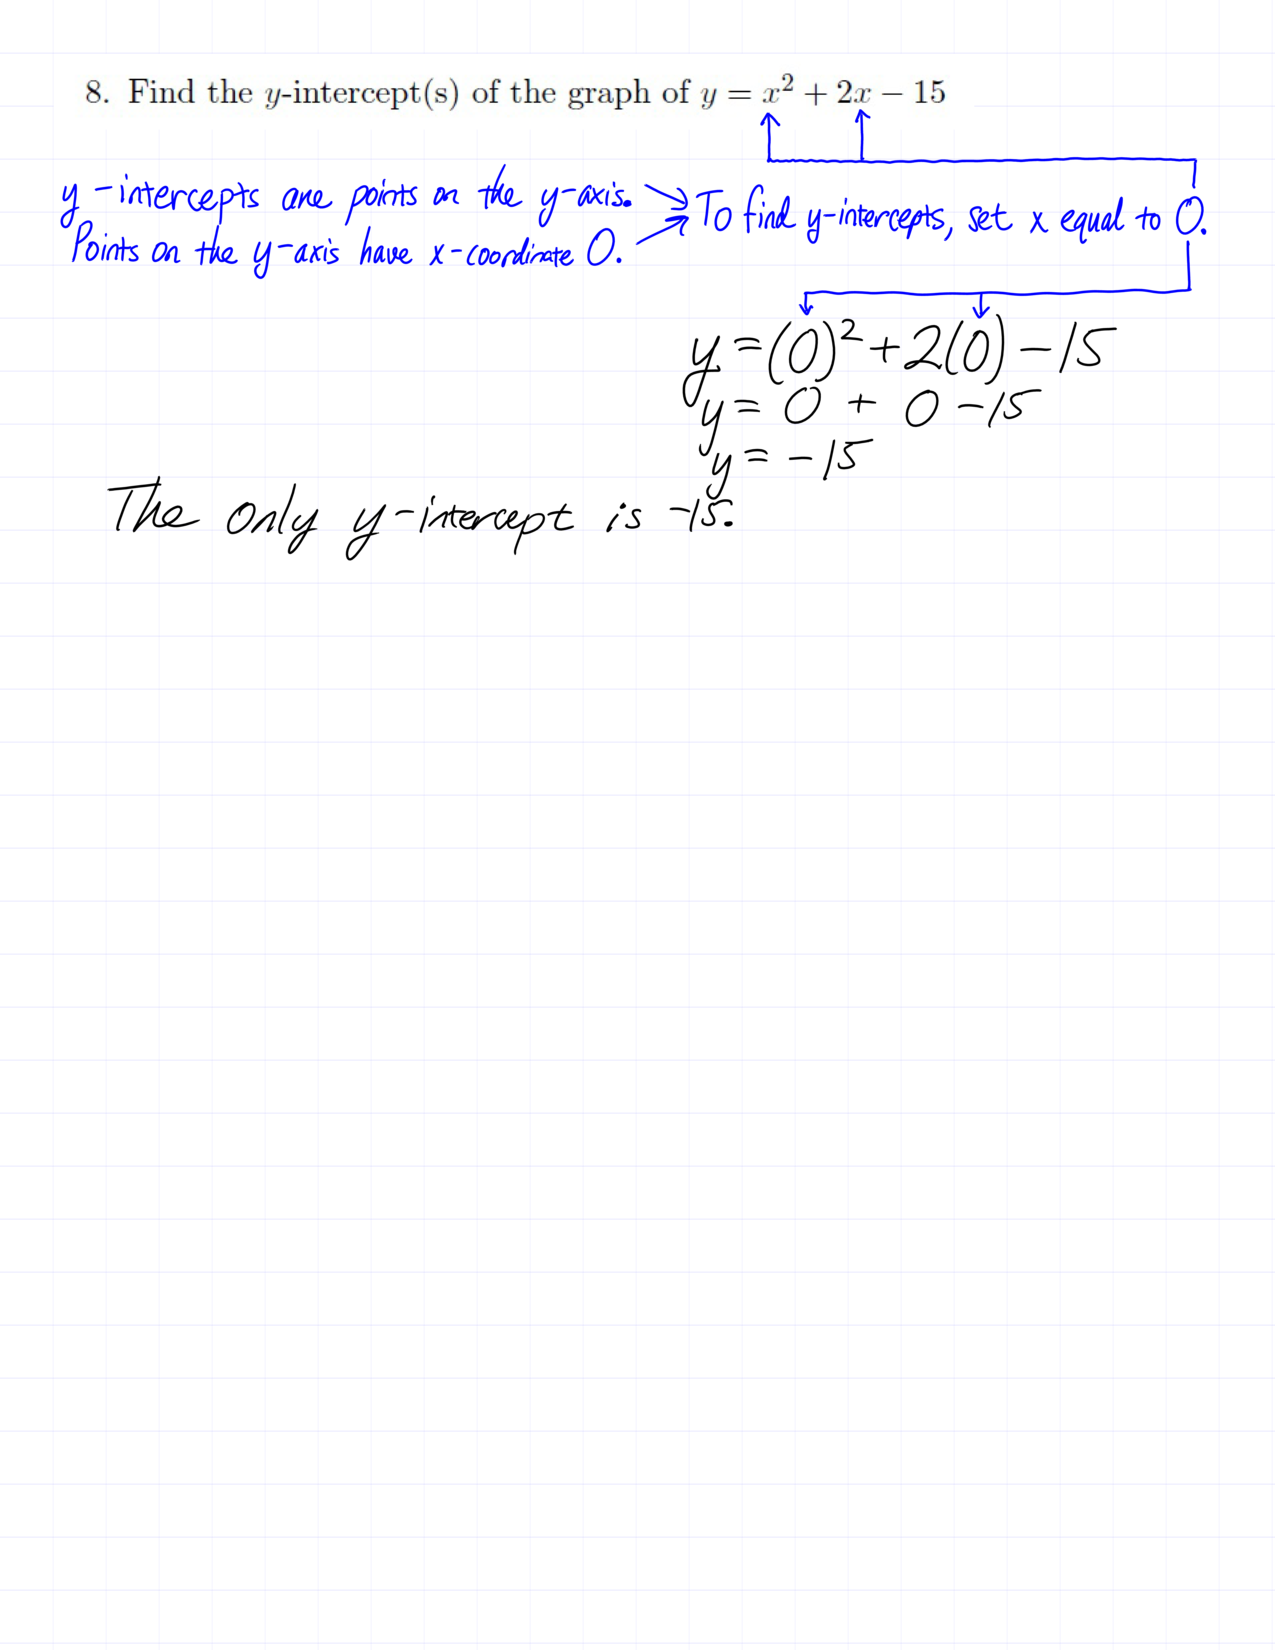 8. Find the y-intercept(s) of the graph of y = x² + 2x − 15
y-intercepts are points on the y-axis.
Points on the y-axis have x-coordinate 0.
To find y-intercepts, set x equal to 0.
y = (0)² + 2(0) − 15
y = 0 + 0 − 15
y = − 15
The only y-intercept is -15.